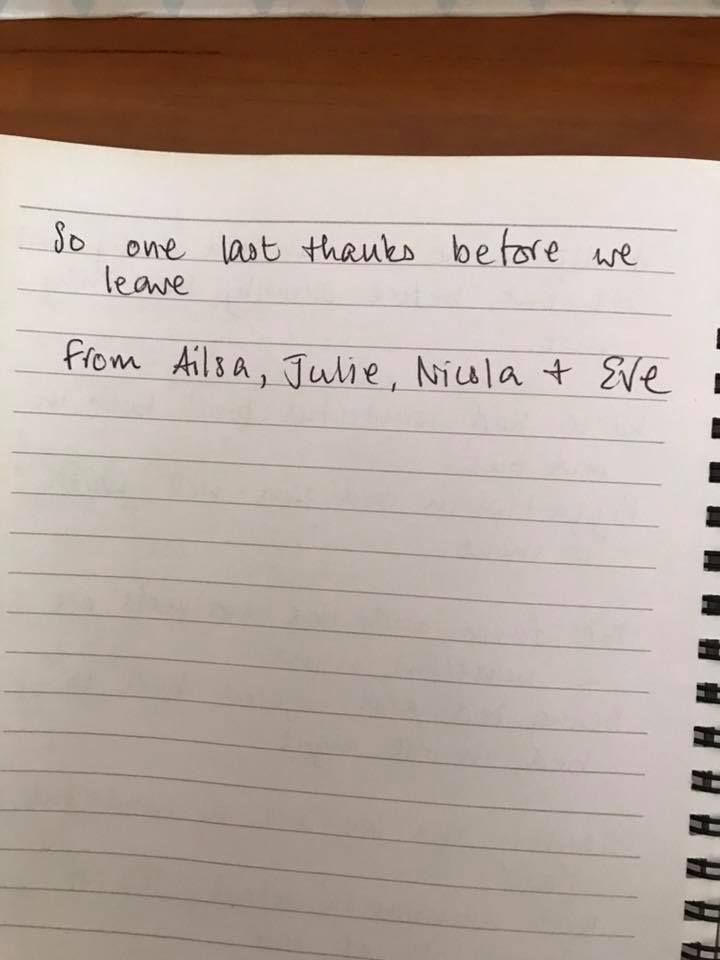 So one last thanks before we
leave
from Ailsa, Julie, Nicola + Eve